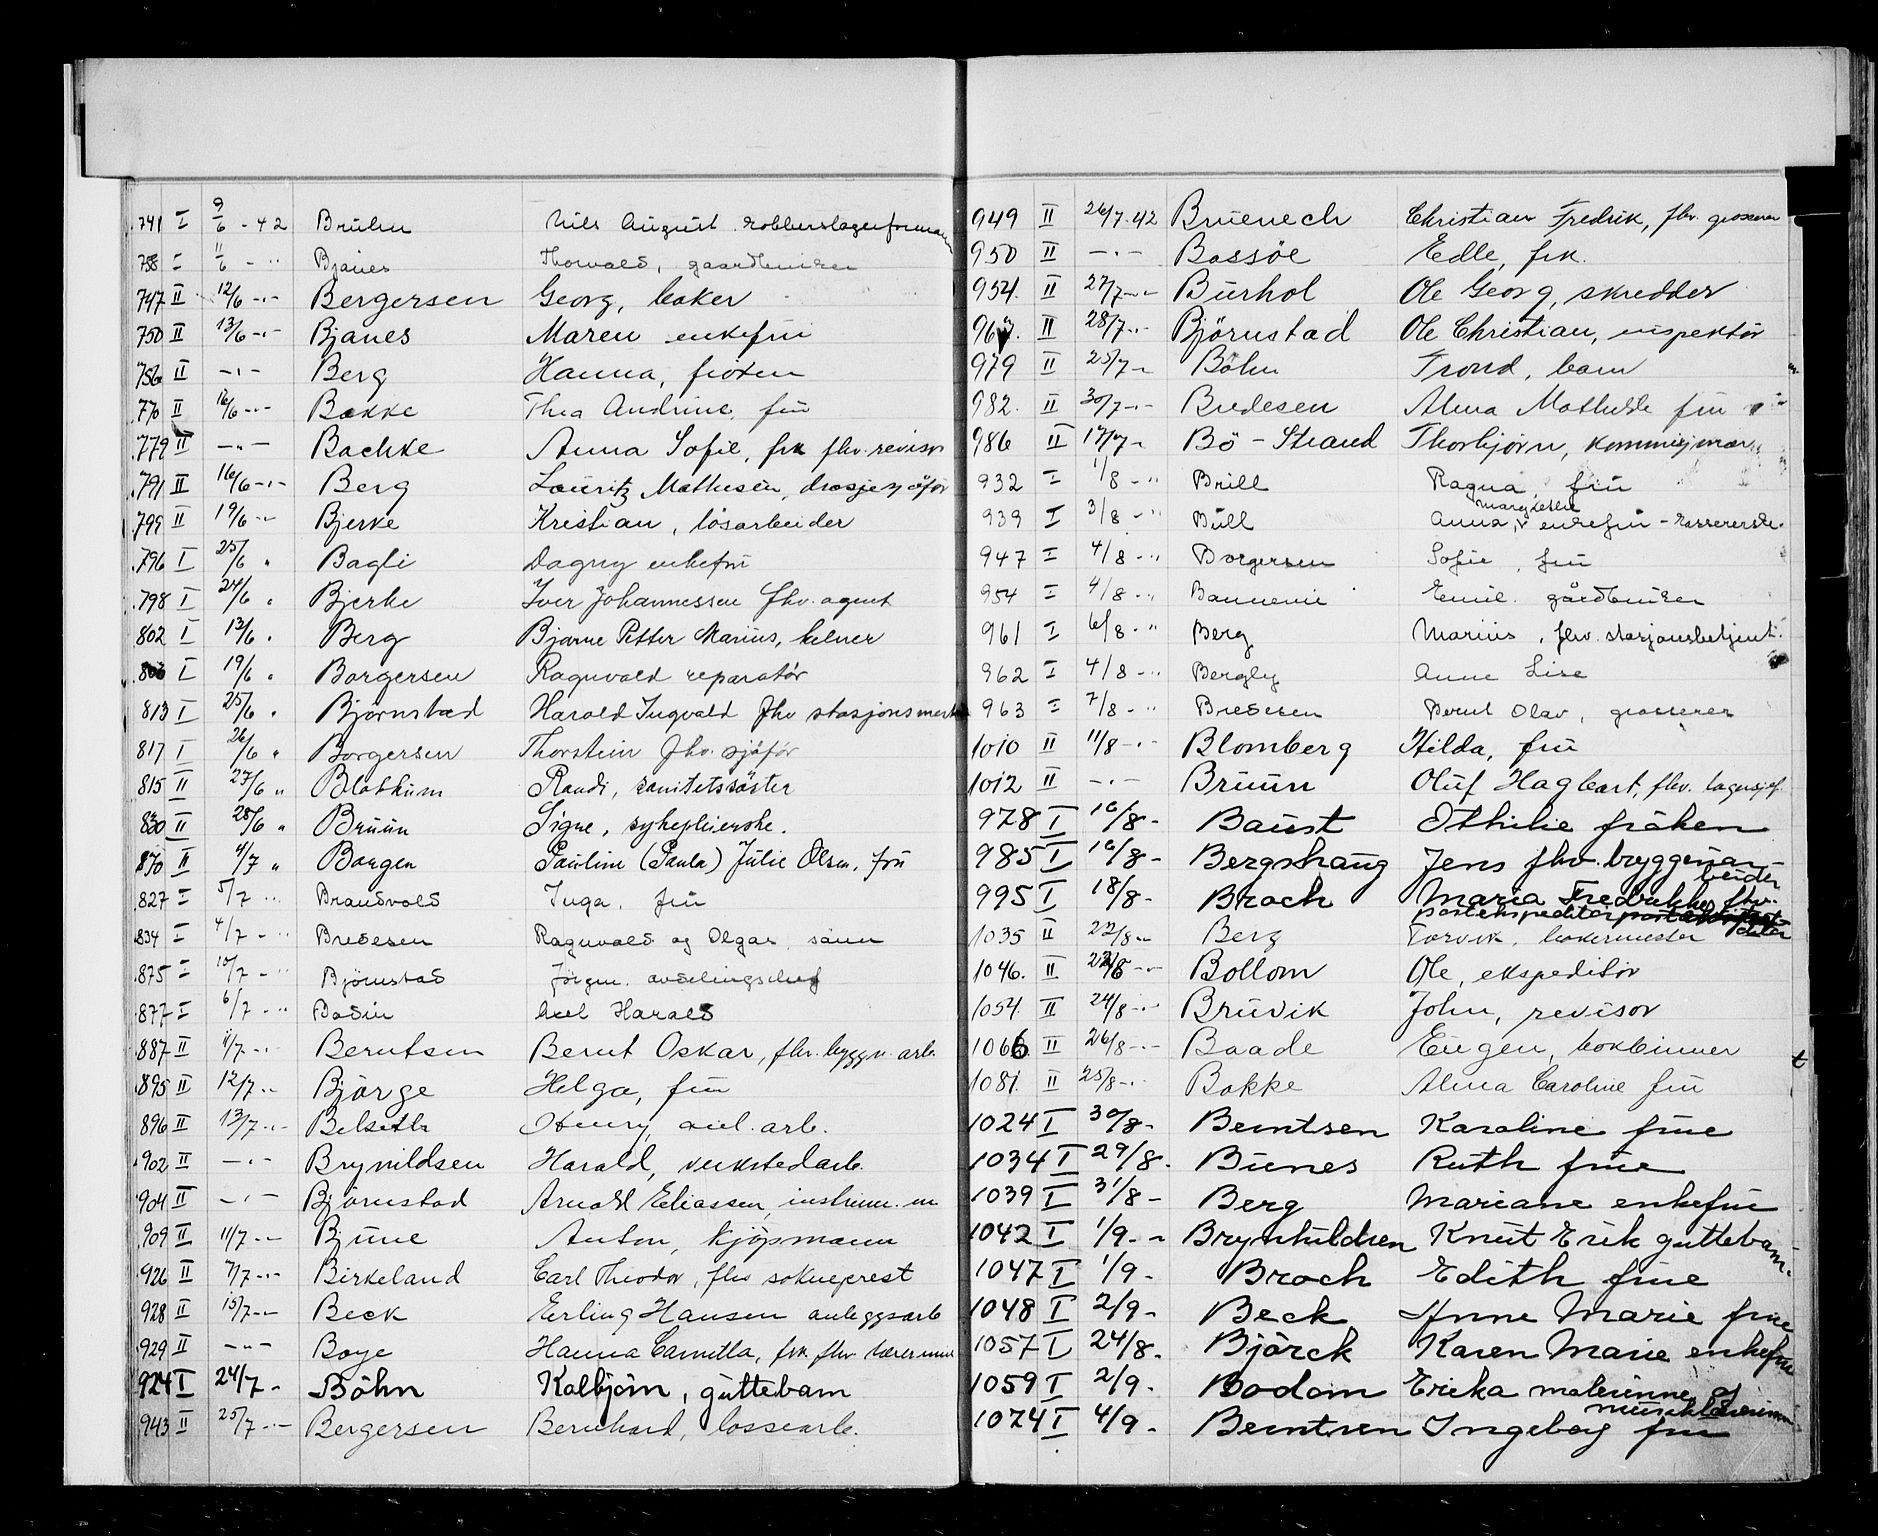 741 I 9/6 - 42 Bruhn Nils August kobberslagerformann
758 I 11/6 - " Bjanes Thorvald, gaardbruker
747 II 12/6 -"- Bergersen Georg, baker
750 II 13/6 -"- Bjanes Maren enkefru
756 II -"- Berg Hanna, frøken
770 II 16/6 -"- Bakke Thea Andrine, fru
779 II -"- Bachke Anna Sofie, frk. fhv. revisor
791 II 16/6 -"- Berg Lauritz Mathesen, drosjesjåfør
799 II 19/6 -"- Bjerke Kristian, løsarbeider
796 I 25/6 " Bagli Dagny enkefru
798 I 24/6 " Bjerke Iver Johannessen fhv. agent
802 I 13/6 " Berg Bjarne Petter Marius, kelner
I 19/6 " Borgersen Ragnvald reparatör
813 I 25/6 " Björnstad Harald Ingvald fhv stasjonsmest
817 I 26/6 " Borgersen Thorstein fhv. sjåför
815 II 27/6 " Blakkum Randi, sanitetssöster
830 II 28/6 " Bruun Signe, sykepleierske.
870 II 4/7 " Borgen Pauline (Paula) Julie Olsen, fru
827 I 5/7 " Brandvold Inga, fru
834 I 4/7 - " Bredesen Ragnvald og Olgas sønn
875 I 10/7 - " Björnstad Jörgen, avdelingschef
877 I 6/7 - " Bodin Axel Harald
887 II 11/7 -"- Berntsen Bernt Oskar, fhv. bryggeriarb.
895 II 12/7 -"- Björge Helga, fru
896 II 13/7 -"- Belseth Henry, anl. arb.
902 II -"- Brynildsen Harald, verkstedarb.
904 II -"- Björnstad Arnold Eliassen, instrum. m
909 II 11/7 -"- Bjune Anton, kjöpmann
926 II 7/7 -"- Birkeland Carl Theodor, fhv sokneprest
928 II 15/7 -"- Beck Erling Hansen anleggsarb
929 II -"- Boye Hanna Camilla, frk. fhv. lærerinne
924 I 24/7 - Böhn Kolbjörn, guttebarn
943 II 25/7 -"- Bergersen Bernhard, lossearb.
949 II 26/7-42 Bruenech Christian Fredrik, fhv. grosserer
950 II -"- Bassöe Edle, frk.
954. II 27/7 -"- Burhol Ole Georg, skredder
967. II 28/7 -"- Björnstad Ole Christian, inspektör
979 II 25/7 - Böhn Trond, barn
982. II 30/7 -"- Bredesen Alma Mathilde fru
986 II 17/7 - Bö-Strand Thorbjörn, kommisjonær
932 I 1/8 - " Brill Ragna, fru
939 I 3/8 - " Bull Anna, Margrethe enkefru - kassererske.
947 I 4/8 - " Borgersen Sofie, fru
954 I 4/8 - " Emil. gårdbruker
961 I 6/8 - " Berg Marius, fhv. stasjonsbetjent.
962 I 4/8 - " Bergly Anne Lise
963 I 7/8 - " Bredesen Bernt Olav, grosserer
1010 II 11/8 -"- Blomberg Hilda, fru
1012 II -"- Bruun Oluf Hagbart, fhv. lagersjef
978 I 16/8 - Baust Othilie fröken
985 I 16/8 - Bergshaug Jens fhv. bryggeriarbeider
995 I 18/8 - Broch Maria Fredrikke fhv. postekspeditör
1035 II 22/8 -"- Berg Torvik, bakermester
1046. II 22/8 -"- Bollom Ole, ekspeditör
1054. II 24/8 -"- Bruvik John, revisor
1066 II 26/8 -"- Baade Eugen, bokbinner
1081. II 25/8 -"- Bakke Alma Caroline fru
1024 I 30/8 - Berntsen Karoline frue
1034 I 29/8 - Bunes Ruth frue
1039 I 31/8 - Berg Mariane enkefru
1042 I 1/9 - - Brynhildsen Knut Erik guttebarn.
1047 I 1/9 - Broch Edith frue
1048 I 2/9 - Beck Anne Marie frue
1057 I 24/8 - Björck Karen Marie enkefrue
1059 I 2/9 - Bodom Ericka malerinne og musiklærerinne
1074 I 4/9 - Berntsen Ingeborg fru